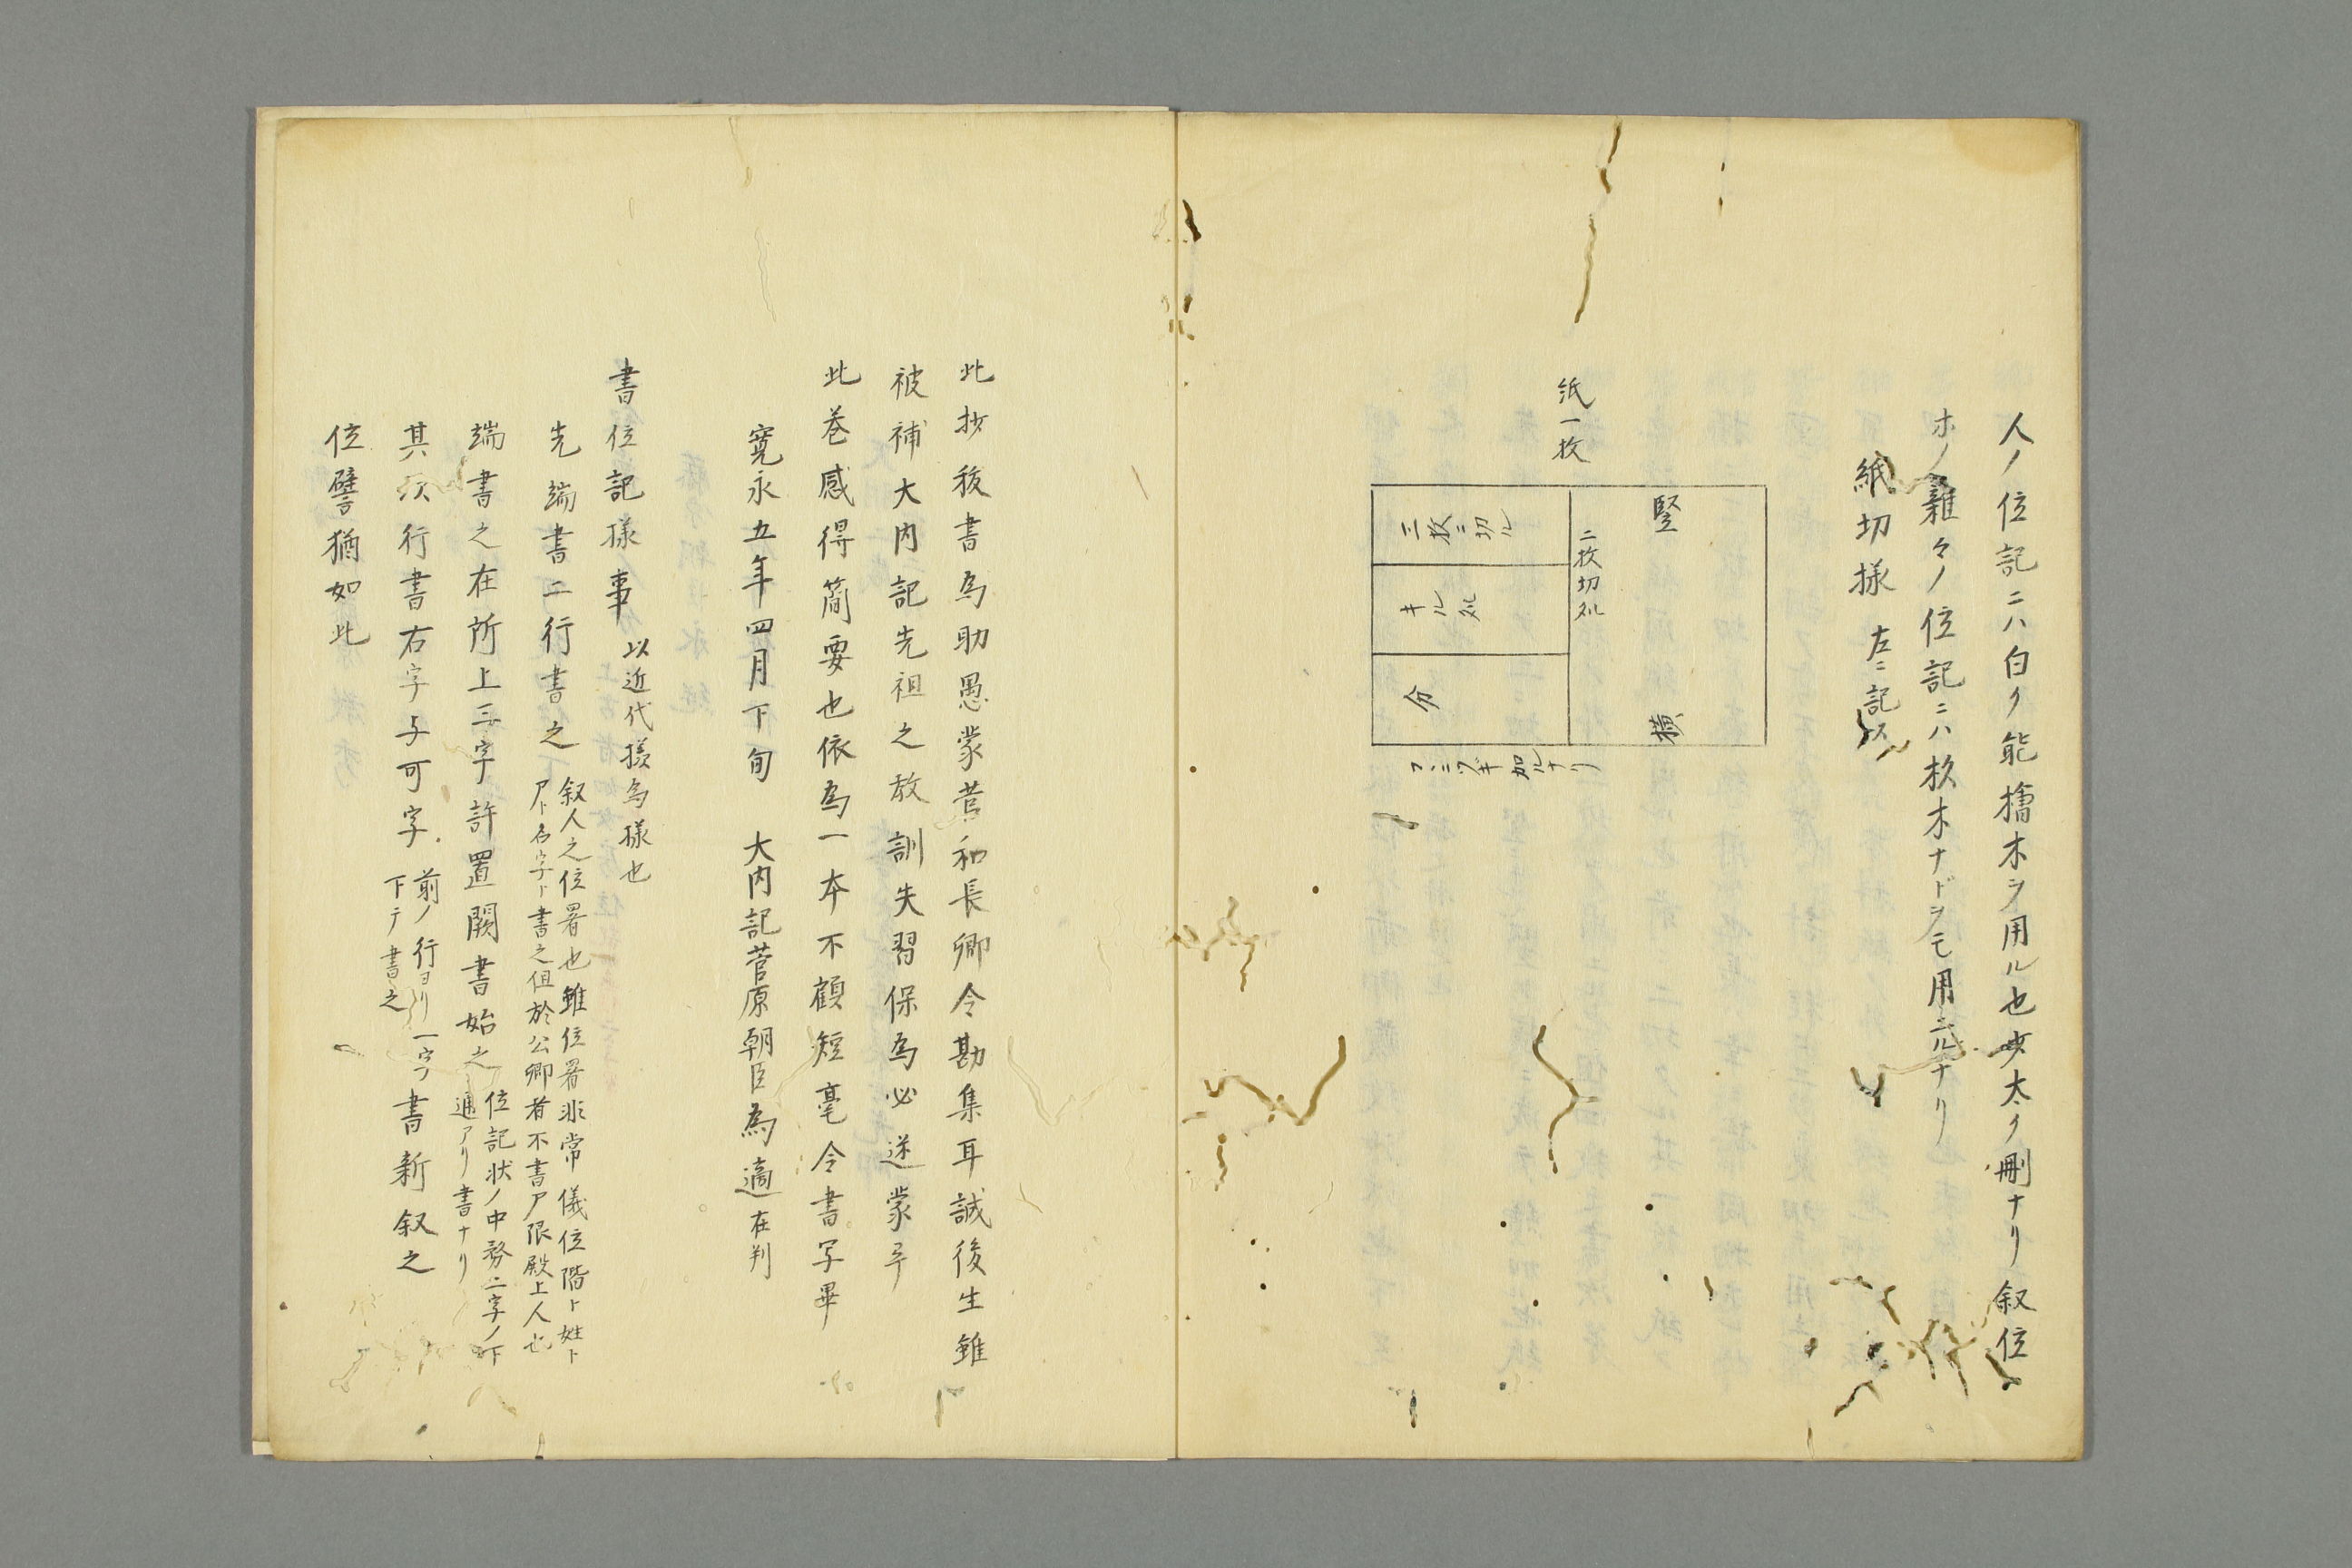 人ノ位記ニハ白ク能檜木ヲ用ル也少太ク刪ナリ叙位
ホノ雜々ノ位記ニハ杉木ナドヲモ用ルナリ
紙切樣 左ニ記ス
紙一枚
竪 横
二枚切処
三枚ニ切ル
キル処
分
フミヅキ加ルナリ
此抄秘書為助愚蒙菅和長卿令勘集耳誠後生雖
被補大内記先祖之故訓失習保為必迷蒙乎
此巻感得簡要也依為一本不顧短毫令書写畢
寛永五年四月下旬 大内記菅原朝臣為適 在判
書位記樣事 以近代樣為樣也
先端書二行書之 叙人之位署也雖位署非常儀位階ト姓ト
尸ト名字ト書之但於公卿者不書尸限殿上人也
端書之在所上三字許置闕書始之 位記状ノ中務二字ノ下
通アリ書ナリ
其次行書右字与可字 前ノ行ヨリ一字
下テ書之 書新叙之
位譬猶如此